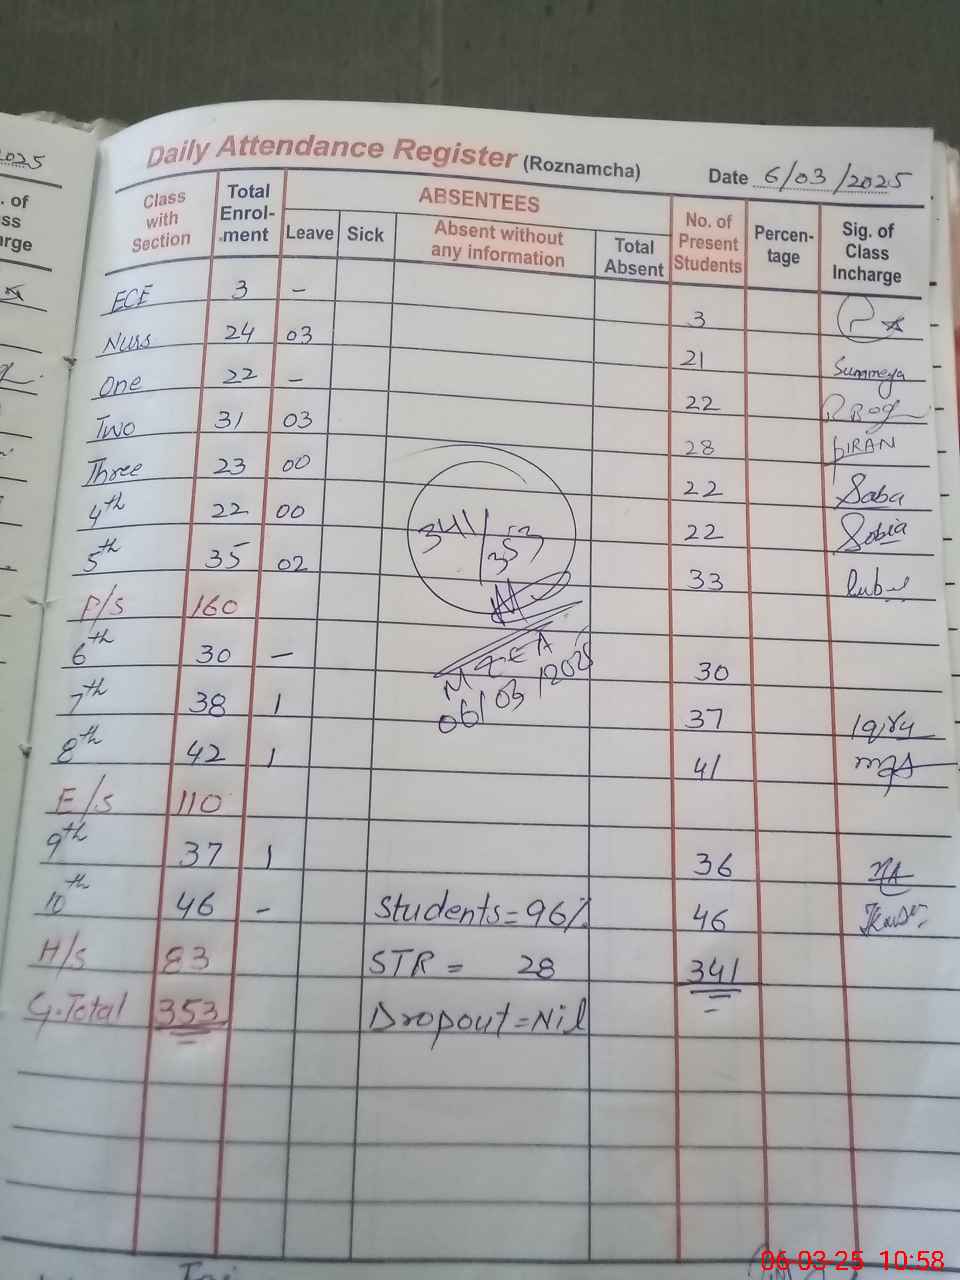 2025
Daily Attendance Register (Roznamcha)
Date 6/03/2025
Class with Section
Total Enrol-ment
ABSENTEES
Leave Sick Absent without any information Total Absent
No. of Present Students
Percen-tage
Sig. of Class Incharge
ECE 3 - 3
Nuss 24 03 21 Summeya
One 22 - 22
Two 31 03 28 GIRAN
Three 23 00 22 Saba
4th 22 00 22 Sobia
5th 35 02 33
P/S 160
341/353
MEEA
06/03/2025
6th 30 - 30
7th 38 1 37
8th 42 1 41
E/S 110
9th 37 1 36
10th 46 - Students=96% 46
H/S 83 STR = 28 341
G.Total 353 Dropout=Nil
06-03-25 10:58